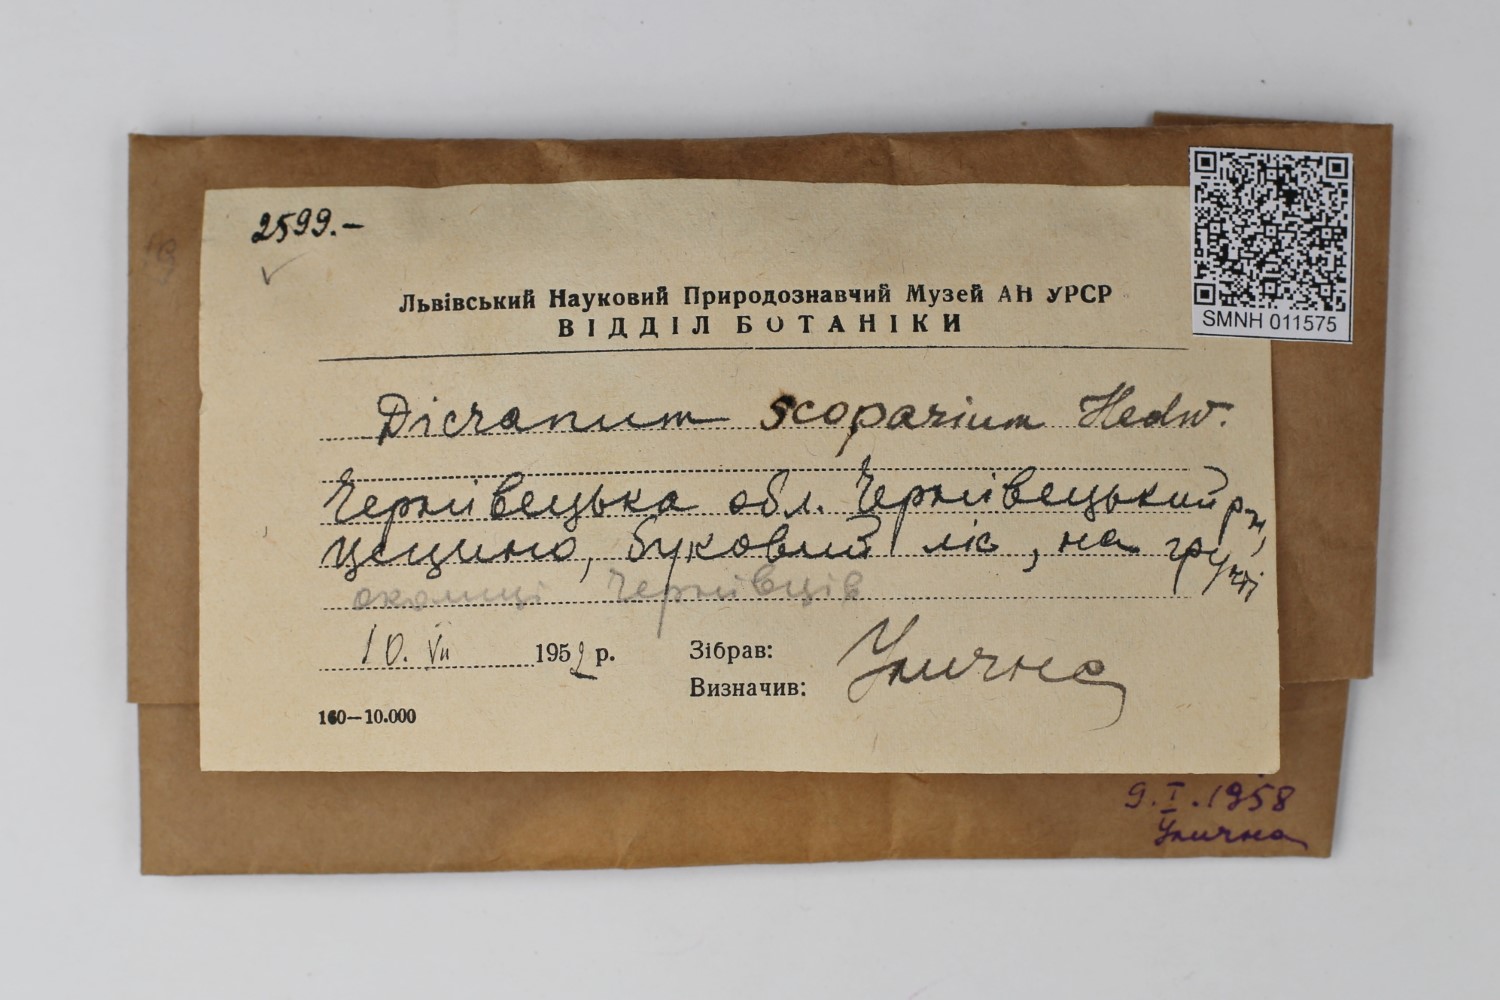 2599.-
SMNH 011575
Львівський Науковий Природознавчий Музей АН УРСР
ВІДДІЛ БОТАНІКИ
Dicranum scoparium Hedw.
Чернівецька обл. Чернівецький р-н,
Цецино, буковий ліс, на грунті
околиці Чернівців
10. VII 1952 р.
Зібрав:
Визначив: Улична
160—10.000
9.I.1958
Улична